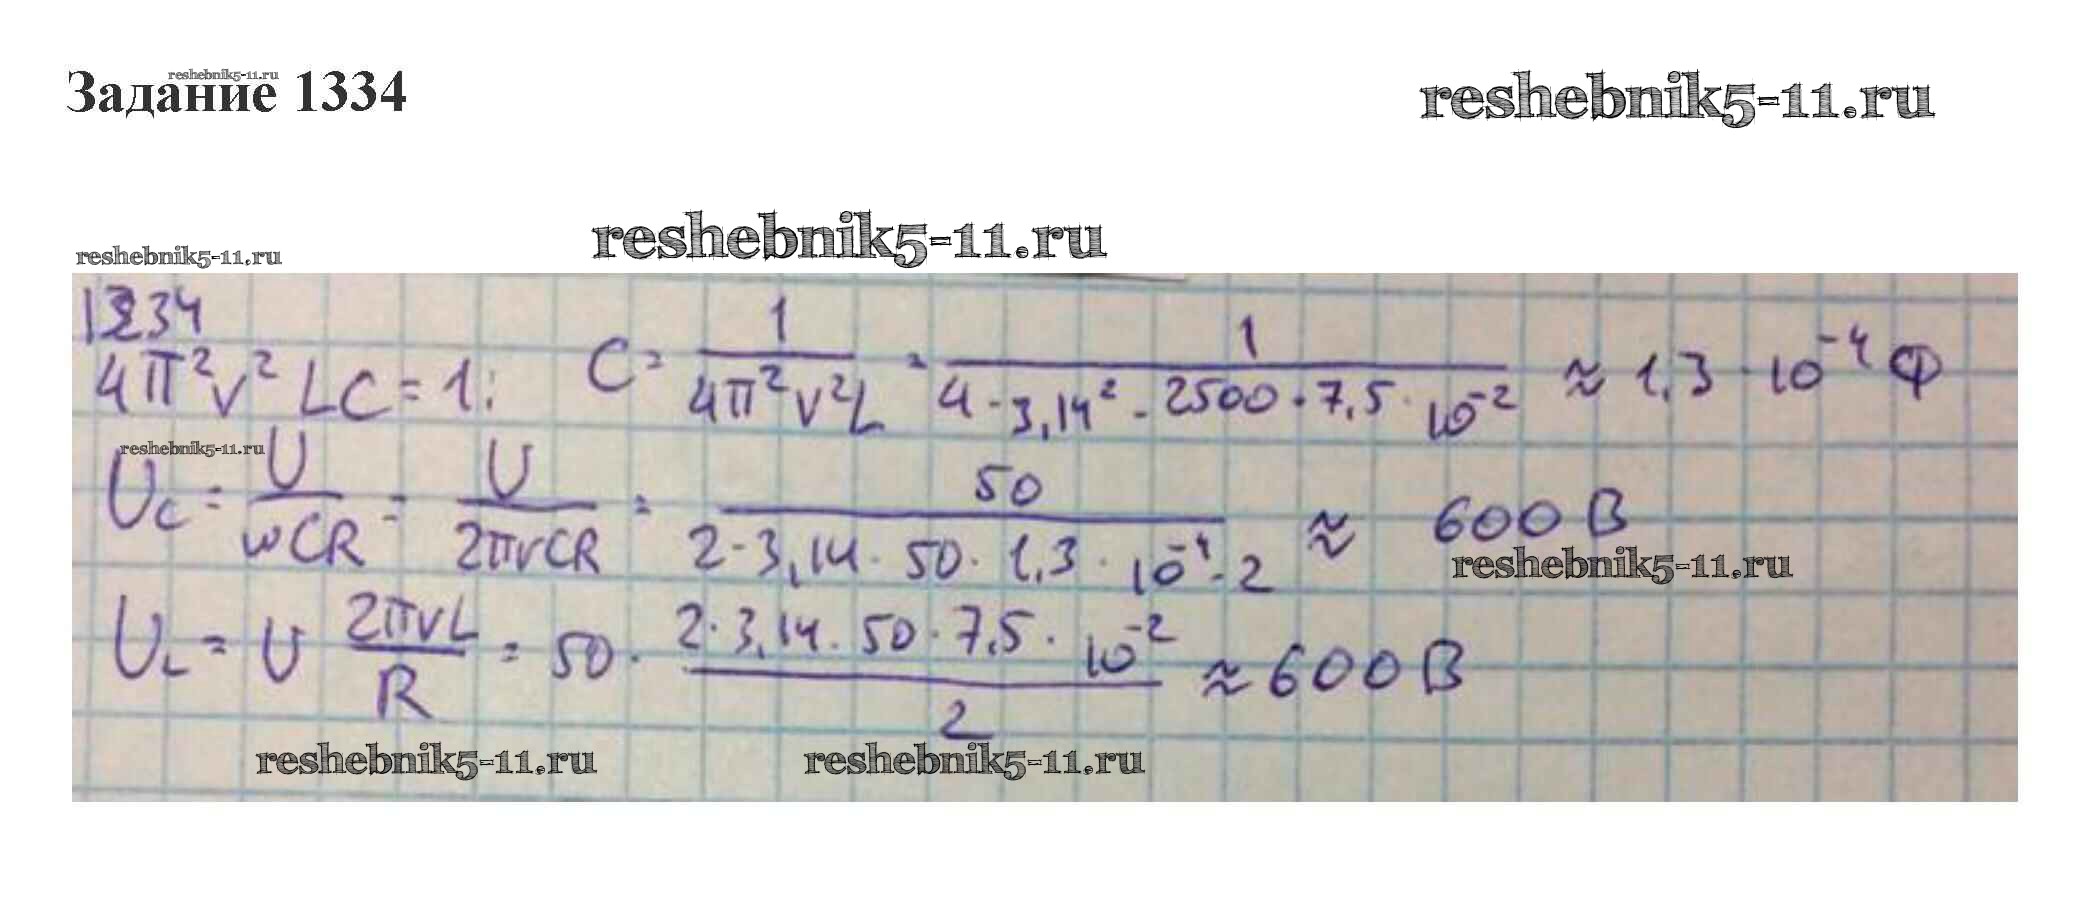 Задание 1334
reshebnik5-11.ru
reshebnik5-11.ru
reshebnik5-11.ru
reshebnik5-11.ru
1334
4π²ν² LC = 1; C = 1 / 4π²ν²L = 1 / 4 · 3,14² · 2500 · 7,5 · 10⁻² ≈ 1,3 · 10⁻⁴ Ф
reshebnik5-11.ru
U_C = U / ωCR = U / 2πνCR = 50 / 2 · 3,14 · 50 · 1,3 · 10⁻⁴ · 2 ≈ 600 В
reshebnik5-11.ru
U_L = U 2πνL / R = 50 · 2 · 3,14 · 50 · 7,5 · 10⁻² / 2 ≈ 600 В
reshebnik5-11.ru
reshebnik5-11.ru